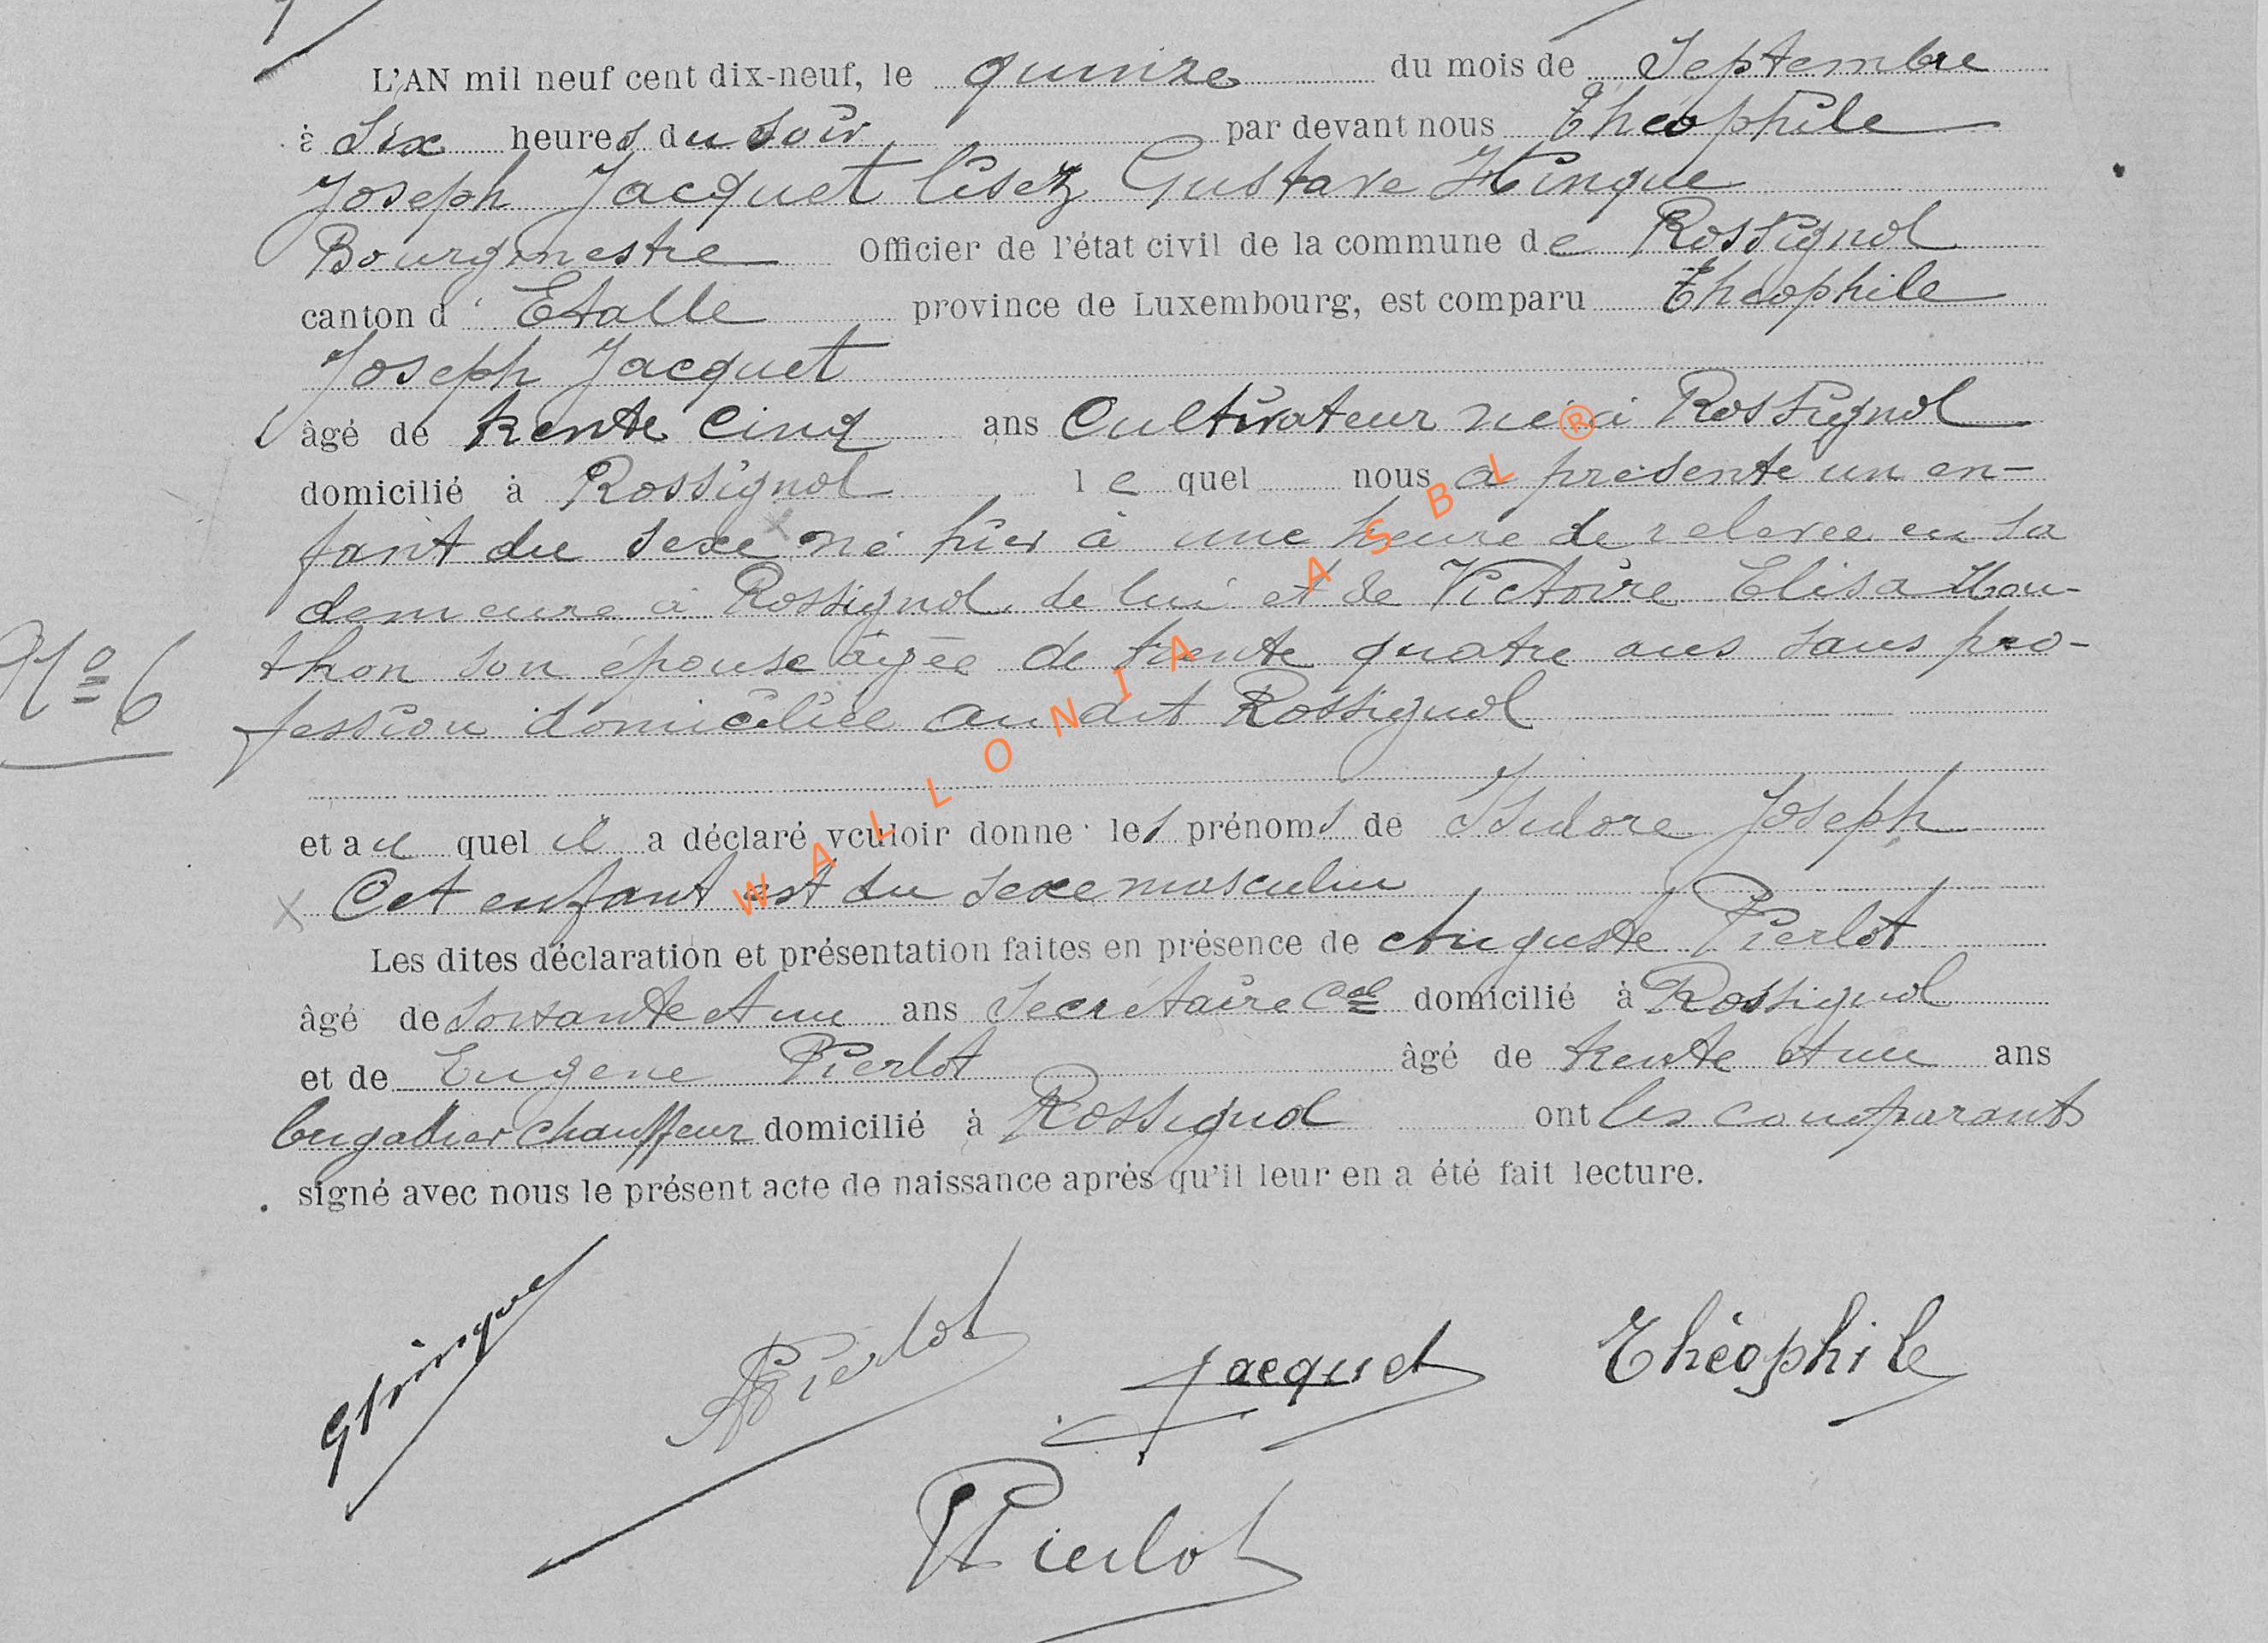 L'AN mil neuf cent dix-neuf, le quinze du mois de Septembre
à Six heures du soir par devant nous Théophile
Joseph Jacquet lisez Gustave Hinque
Bourgmestre Officier de l'état civil de la commune de Rossignol
canton d' Etalle province de Luxembourg, est comparu Théophile
Joseph Jacquet
âgé de trente cinq ans Cultivateur né à Rossignol
domicilié à Rossignol le quel nous a présenté un en-
fant du sexe x né hier à une heure de relevée en sa
demeure à Rossignol de lui et de Victoire Elisa Mou-
N° 6
thon son épouse âgée de trente quatre ans sans pro-
fession domiciliée au dit Rossignol
et au quel il a déclaré vouloir donner les prénoms de Isidore Joseph
x Cet enfant est du sexe masculin
Les dites déclaration et présentation faites en présence de Auguste Pierlot
âgé de soixante et un ans Secrétaire Cal domicilié à Rossignol
et de Eugène Pierlot âgé de trente et un ans
brigadier chauffeur domicilié à Rossignol ont les comparants
signé avec nous le présent acte de naissance après qu'il leur en a été fait lecture.
GHinque APierlot Jacquet Théophile
Pierlot
WALLONIA ASBL ®